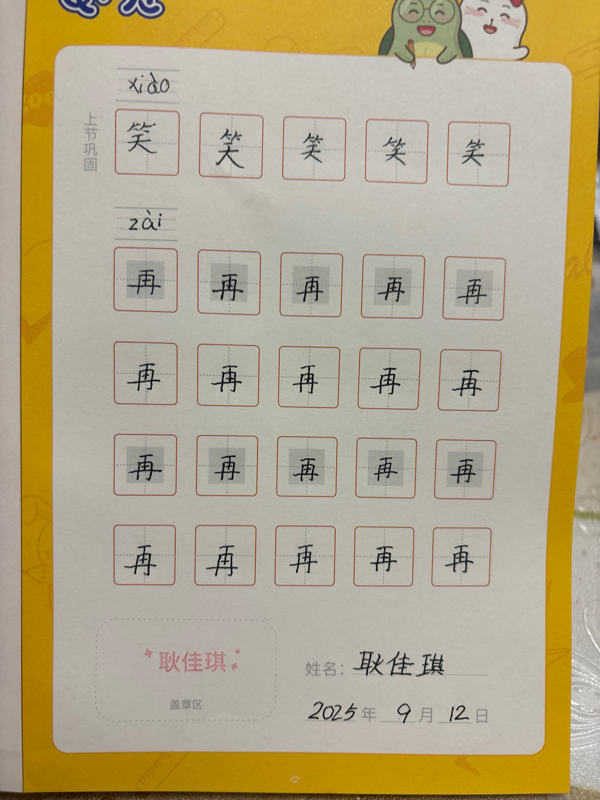 xiào
上节巩固
笑 笑 笑 笑 笑
zài
再 再 再 再 再
再 再 再 再 再
再 再 再 再 再
再 再 再 再 再
耿佳琪
盖章区
姓名：耿佳琪
2025年9月12日